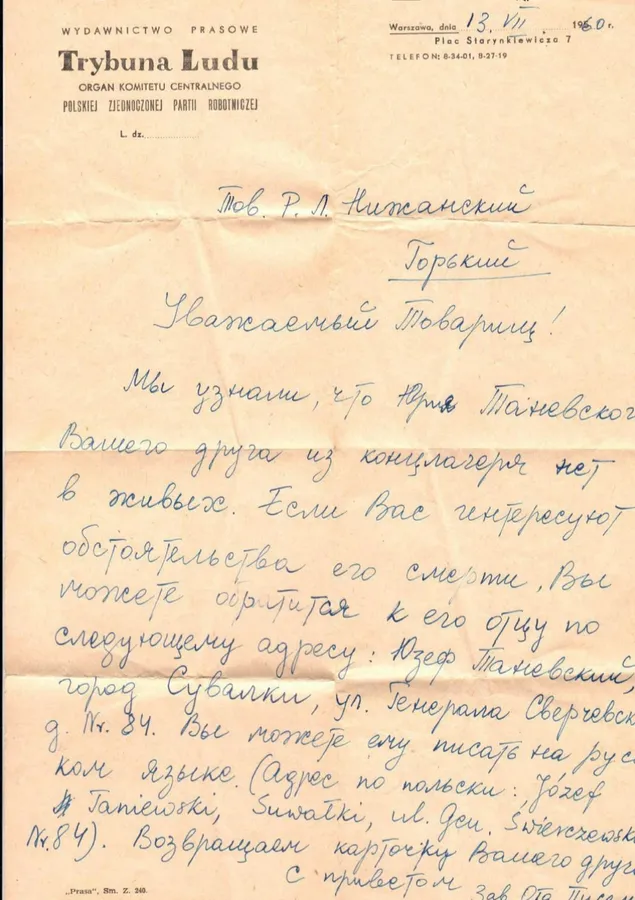 WYDAWNICTWO PRASOWE
Trybuna Ludu
ORGAN KOMITETU CENTRALNEGO
POLSKIEJ ZJEDNOCZONEJ PARTII ROBOTNICZEJ
L. dz.
Warszawa, dnia 13. VII 1960 r.
Plac Starynkiewicza 7
TELEFON: 8-34-01, 8-27-19
Тов. Р. Л. Нижанский
Горький
Уважаемый Товарищ!
Мы узнали, что Юрия Таневского
Вашего друга из концлагеря нет
в живых. Если Вас интересуют
обстоятельства его смерти, Вы
можете обратится к его отцу по
следующему адресу: Юзеф Таневский,
город Сувалки, ул. Генерала Сверчевск
д. Nr. 84. Вы можете ему писать на русс
ком языке. (Адрес по польски: Józef
Taniewski, Suwałki, ul. Gen. Świerczewsk
Nr. 84). Возвращаем карточку Вашего друга
С приветом
Зав. Отд. Писем
„Prasa", Sm. Z. 240.